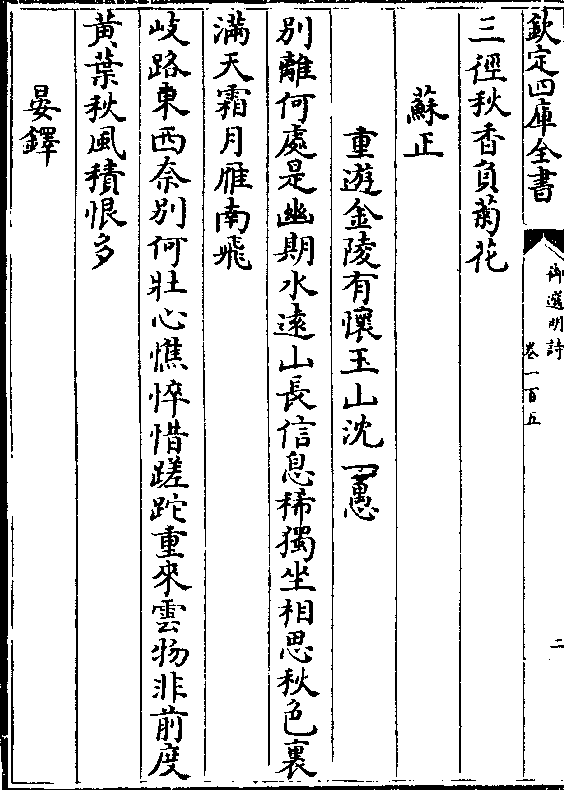 欽定四庫全書
御選明詩
卷一百五
二
三徑秋香負菊花
蘇正
重遊金陵有懷玉山沈
別離何處是幽期水遠山長信息稀獨坐相思秋色裏
滿天霜月雁南飛
岐路東西奈別何壯心憔悴惜蹉跎重來雲物非前度
黃葉秋風積恨多
晏鐸